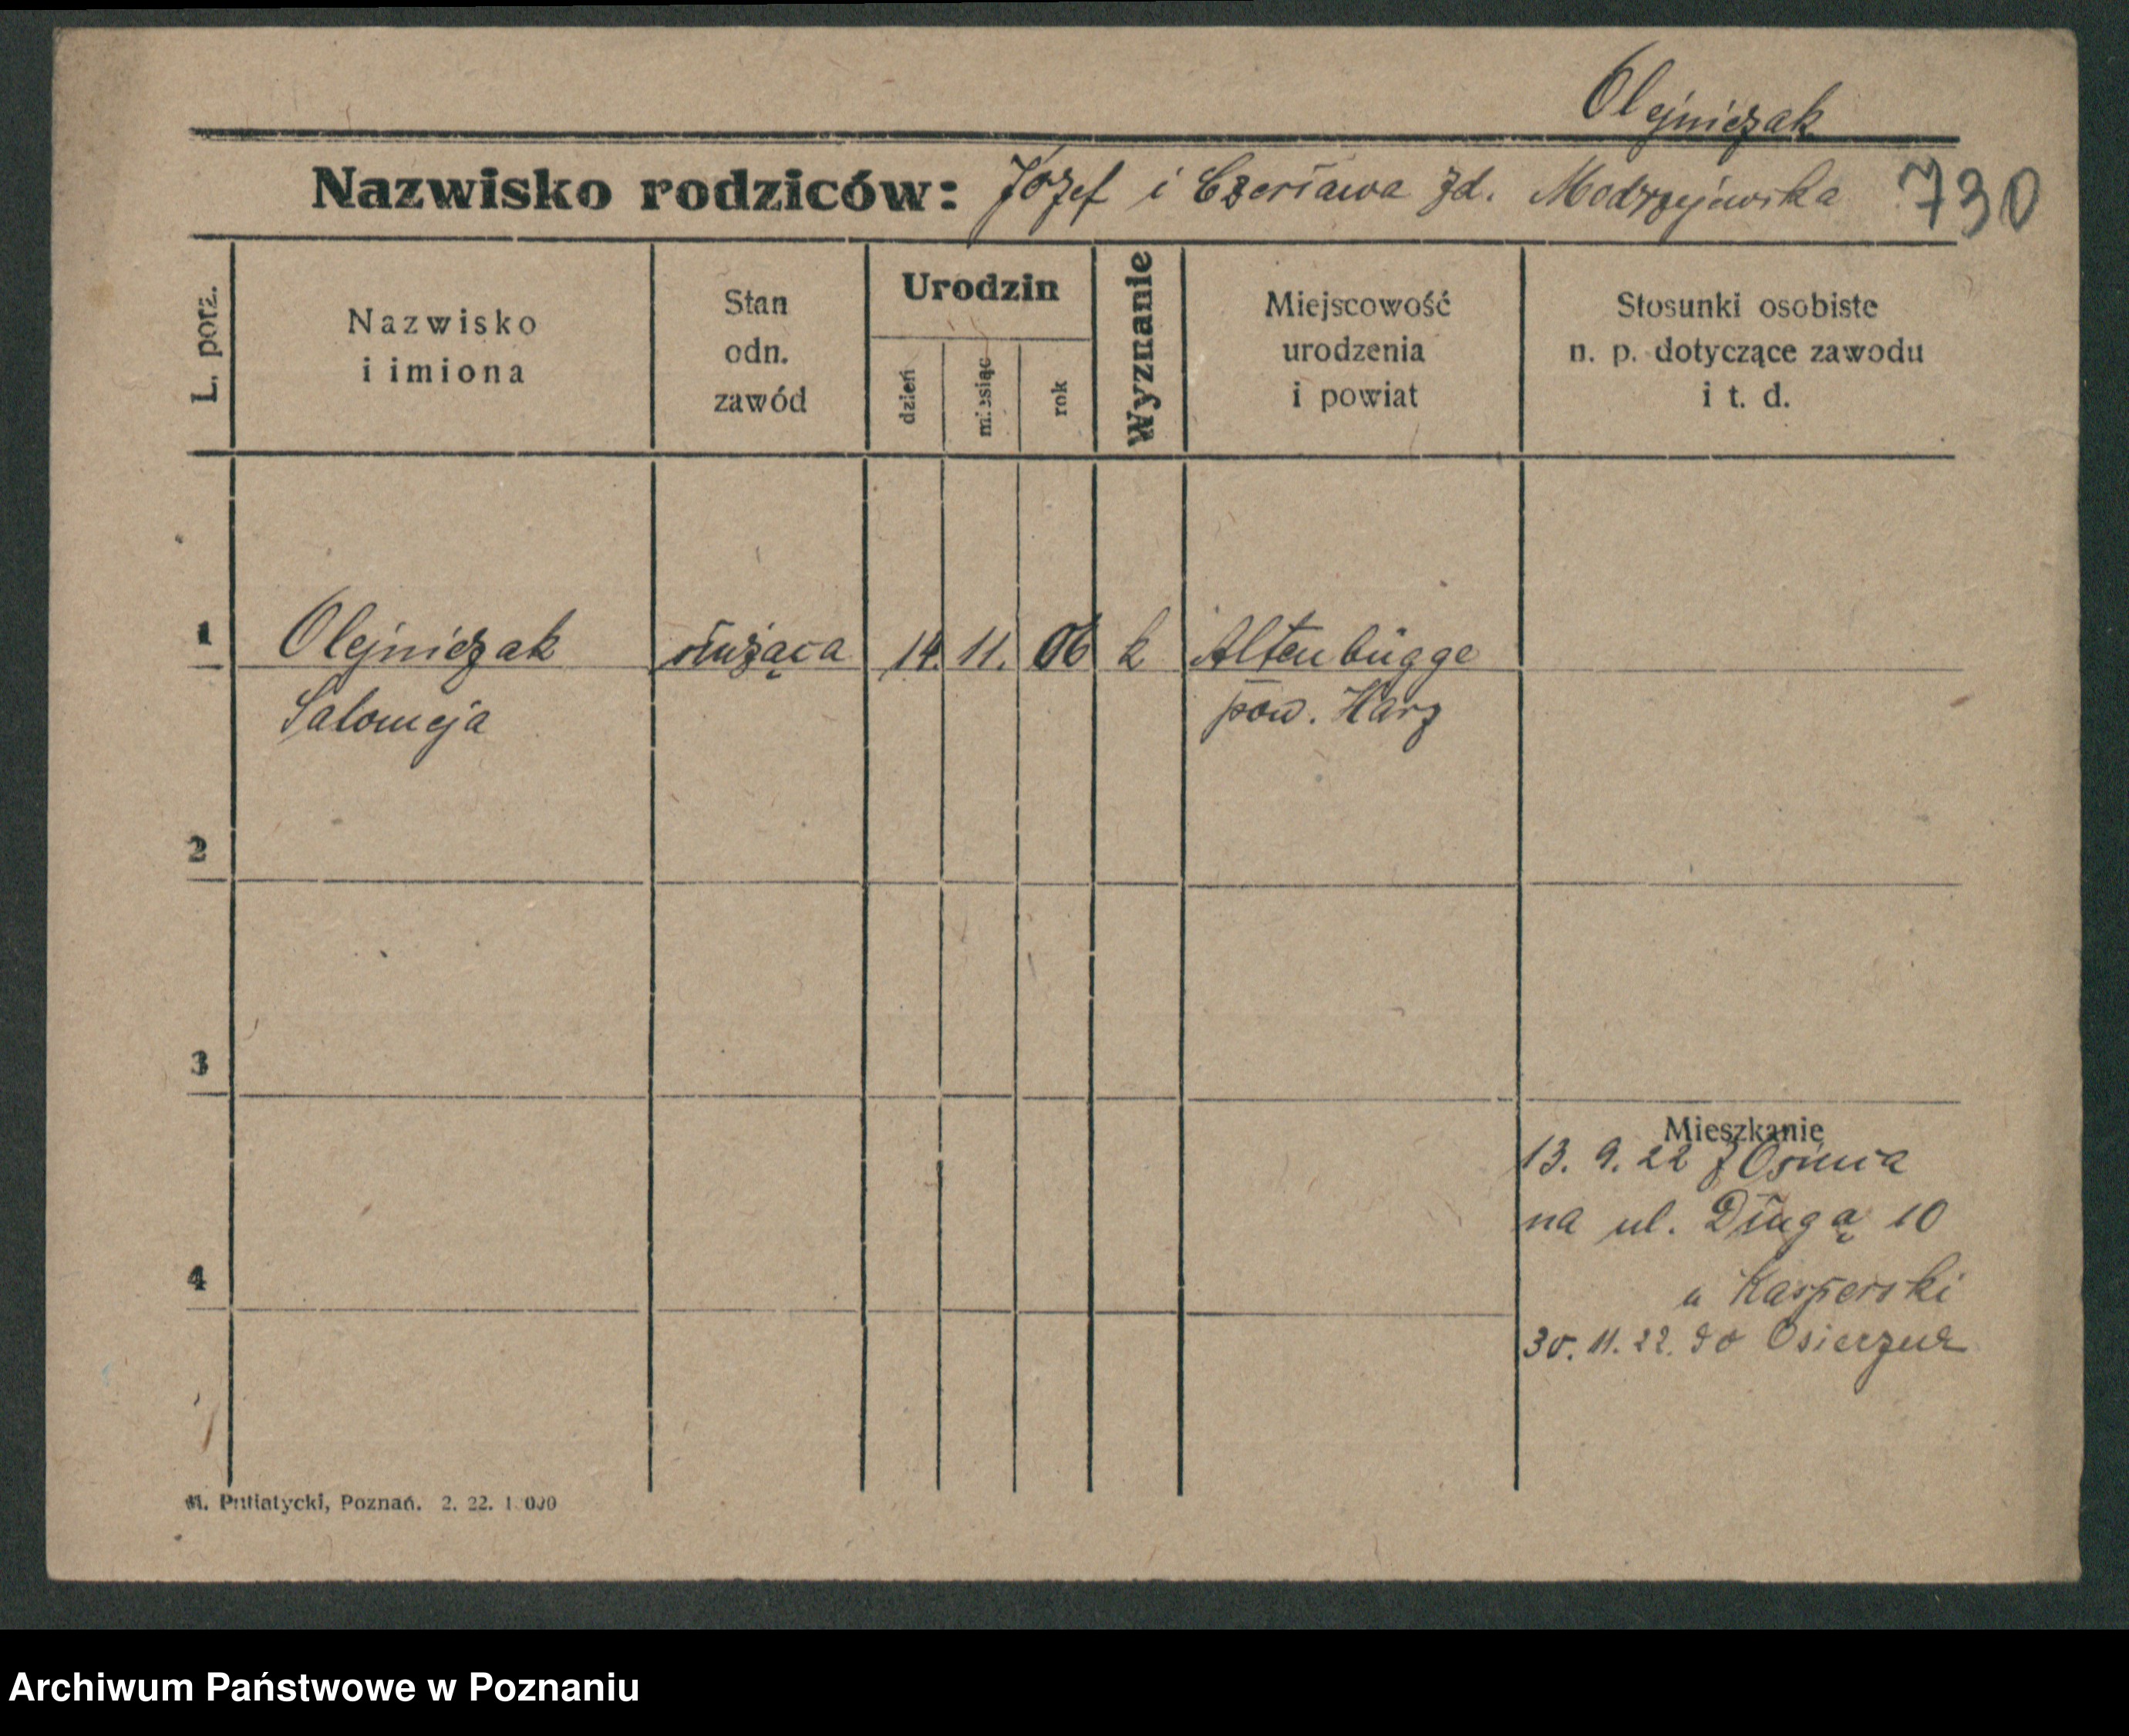 Olejniczak
Nazwisko rodziców: Józef i Czesława zd. Modrzejewska 730
L. porz.
Nazwisko
i imiona
Stan
odn.
zawód
Urodzin
dzień
miesiąc
rok
Wyznanie
Miejscowość
urodzenia
i powiat
Stosunki osobiste
n. p. dotyczące zawodu
i t. d.
1 Olejniczak służąca 14. 11. 06 k Altenbügge
Salomeja pow. Harz
2
3
Mieszkanie
13. 9. 22 z
na ul. Długą 10
u Kasperski
4
30. 11. 22. do
Poznań. 2. 22.
Archiwum Państwowe w Poznaniu